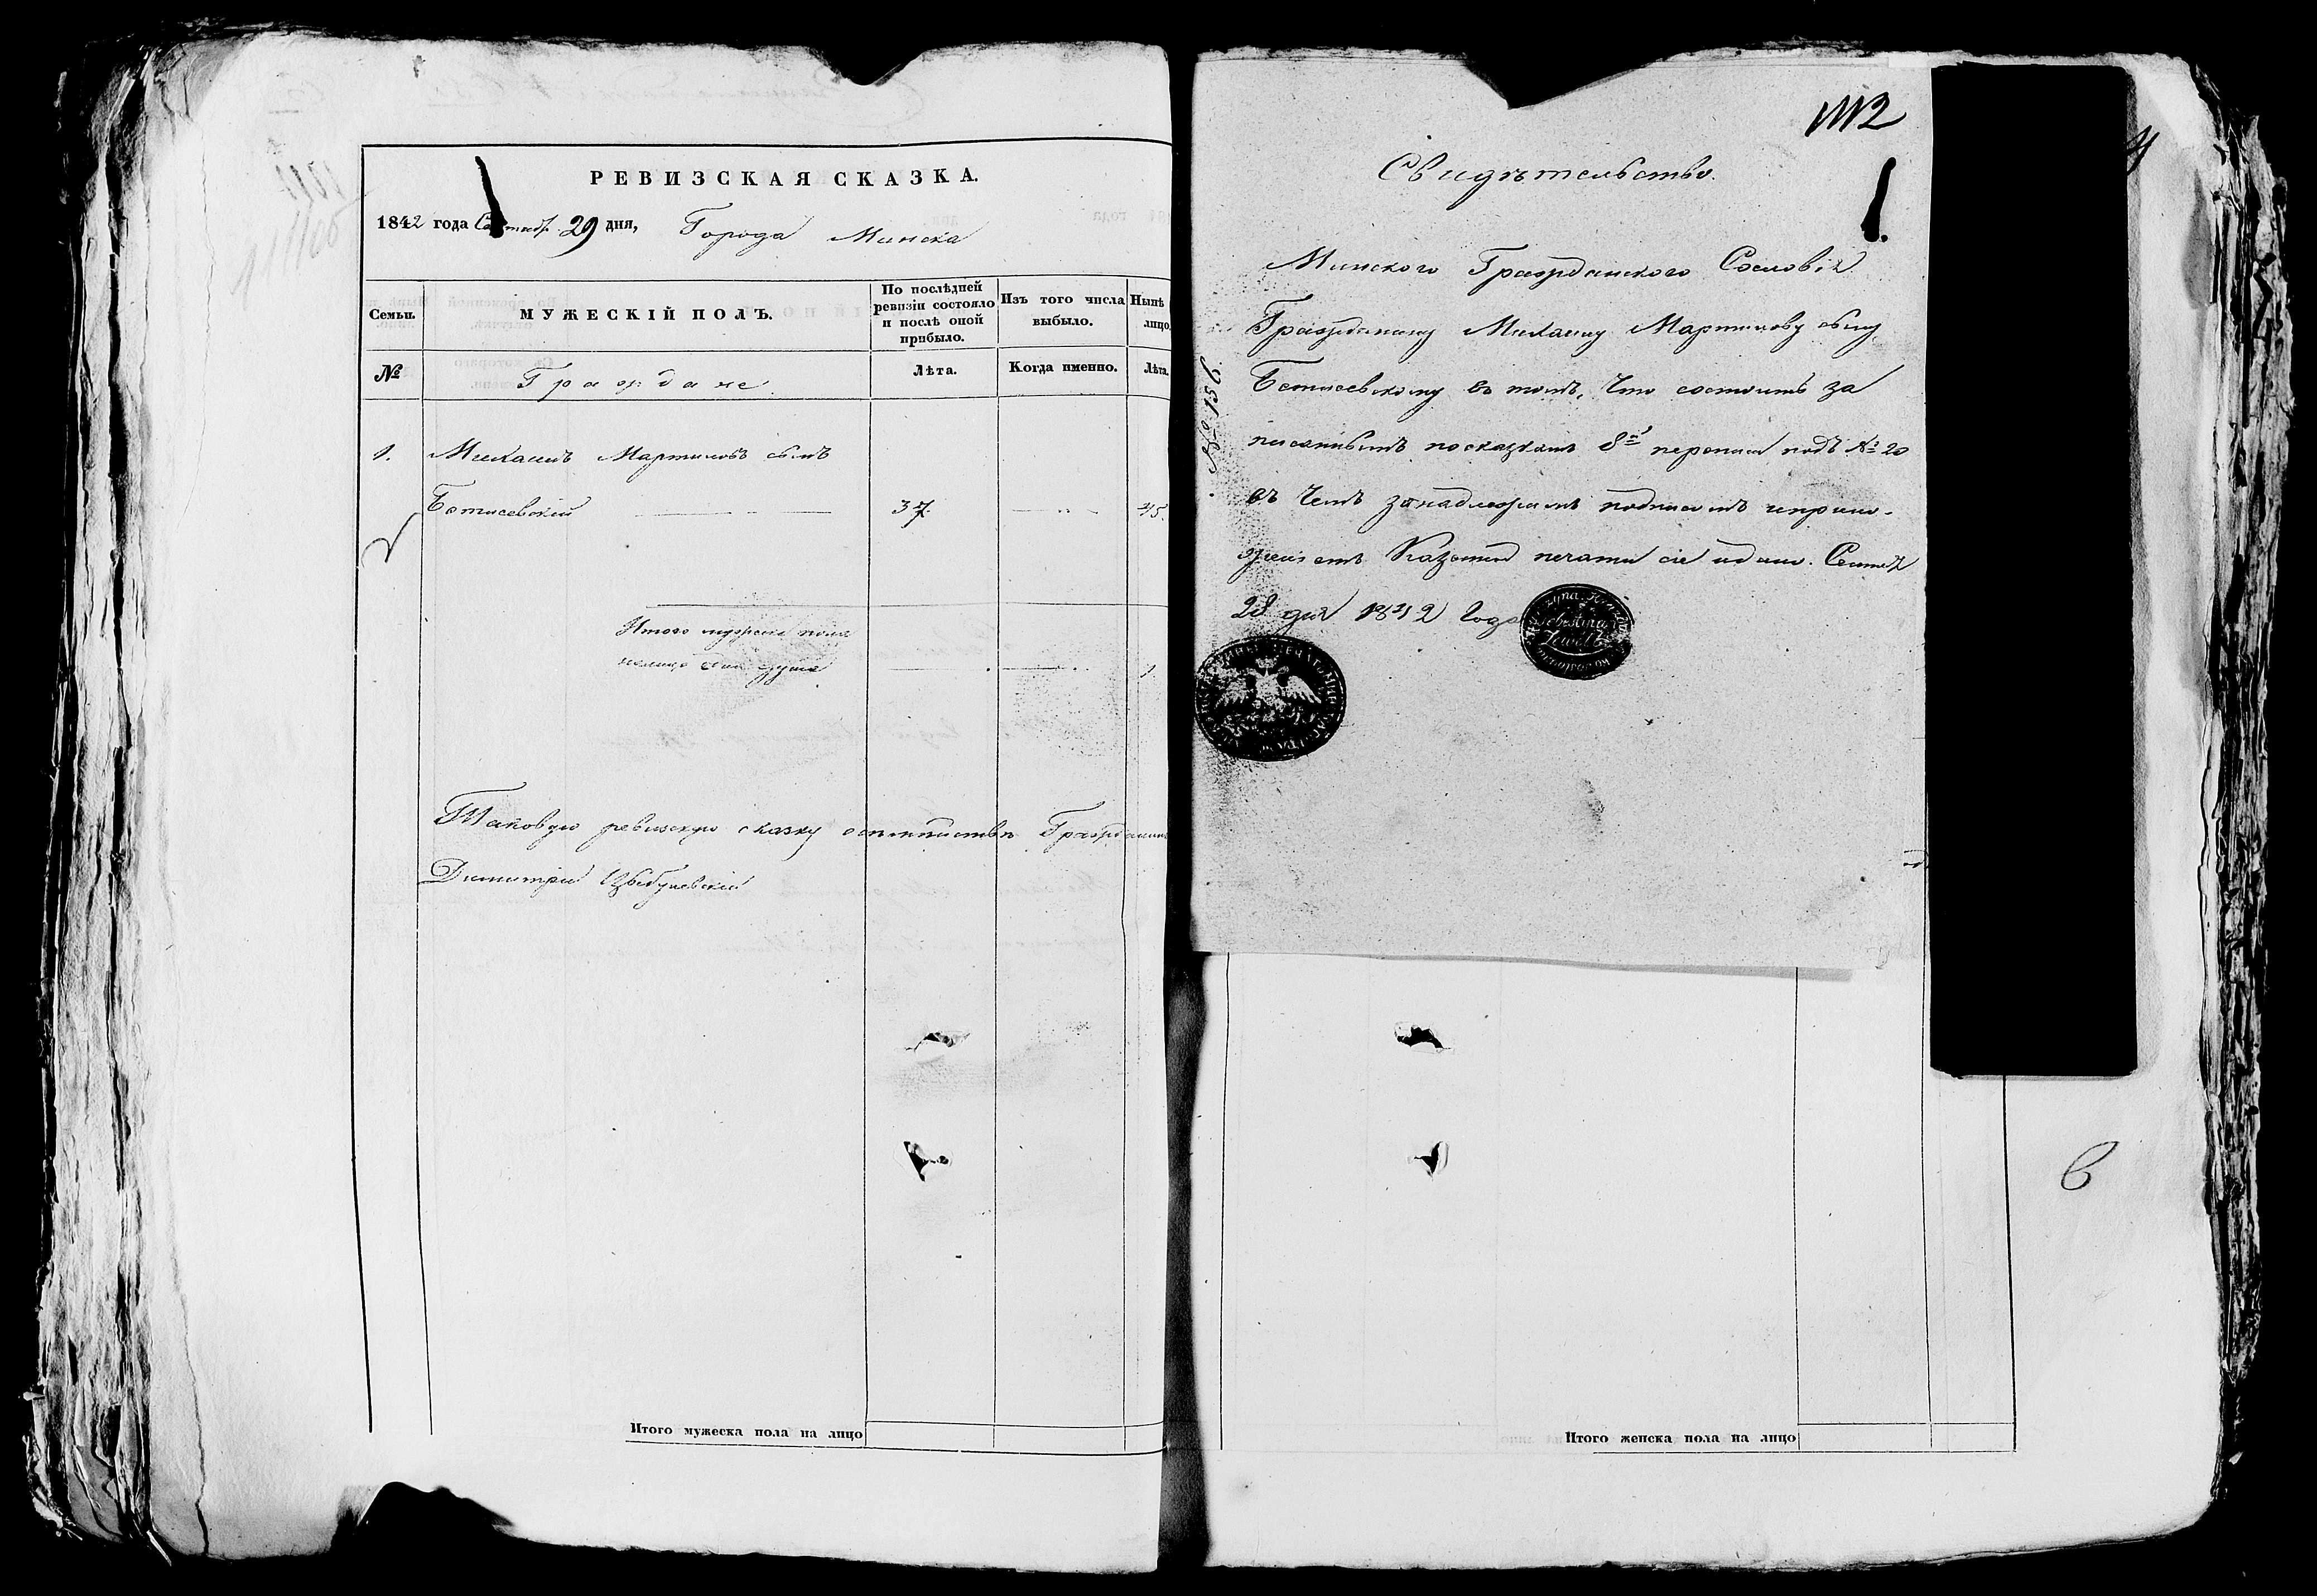 РЕВИЗСКАЯ СКАЗКА.
1842 года 29 дня, Города Минска
Семьи.
МУЖЕСКІЙ ПОЛЪ.
По послѣдней
ревизіи состояло
и послѣ оной
прибыло.
Изъ того числа
выбыло.
Нынѣ
лицо
№
Граждане
Лѣта.
Когда именно.
Лѣта.
1. Михаилъ Мартиновъ сынъ
37.
45.
Итого мужеска пола
налицо одна душа
1
Таковую ревизскую сказку Гражданинъ
Димитрій
Итого мужеска пола на лицо
1112
Свидѣтельство.
1.
№ 156.
Минского Гражданского Сословія
Гражданину Михаилу Мартинову сыну
въ томъ, что состоитъ за
писаннымъ по сказкамъ 8й переписи подъ № 20
въ чемъ за надлежащимъ подписомъ и прило-
женіемъ Казенной печати сіе дано. Сентяб
28 дня 1842 года
Итого женска пола на лицо
6